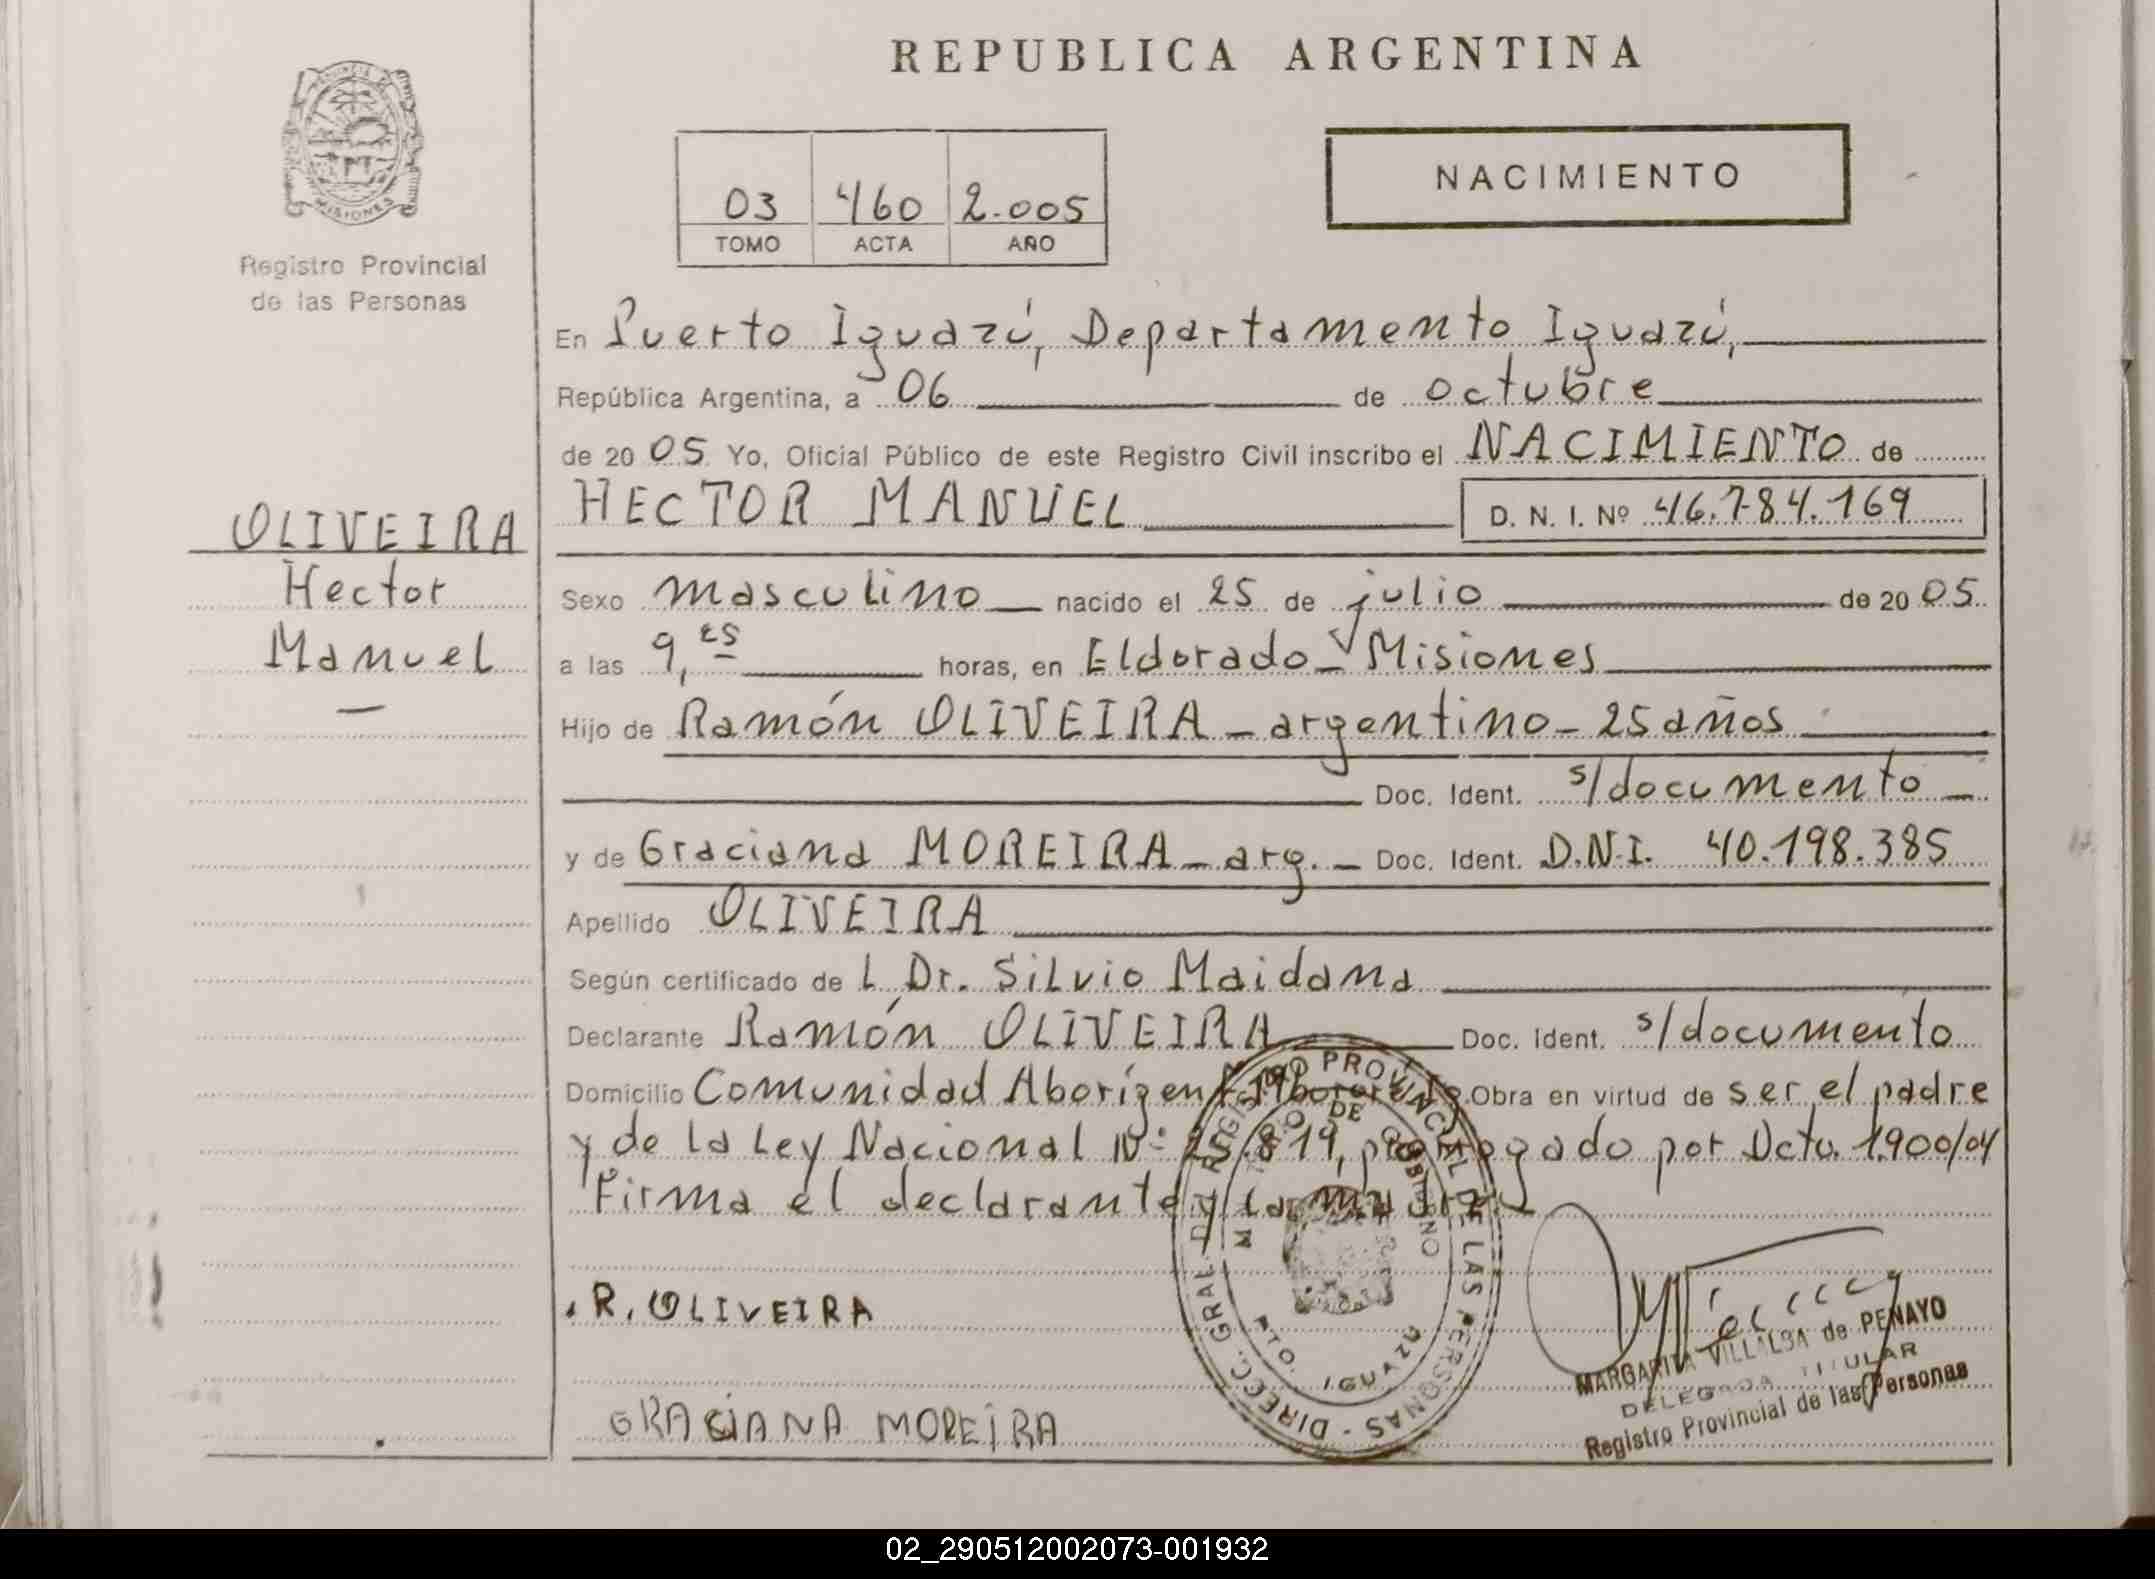 REPUBLICA ARGENTINA
PROVINCIA DE MISIONES
Registro Provincial
de las Personas
03 460 2.005
TOMO ACTA AÑO
NACIMIENTO
En Puerto Iguazú, Departamento Iguazú,
República Argentina, a 06 de octubre
de 2005 Yo, Oficial Público de este Registro Civil inscribo el NACIMIENTO de
HECTOR MANUEL D. N. I. Nº 46.784.169
OLIVEIRA
Hector
Manuel
Sexo masculino nacido el 25 de julio de 2005
a las 9, horas, en Eldorado - Misiones
Hijo de Ramón OLIVEIRA - argentino - 25 años
Doc. Ident. s/documento
y de Graciana MOREIRA - arg. - Doc. Ident. D.N.I. 40.198.385
Apellido OLIVEIRA
Según certificado de L Dr. Silvio Maidana
Declarante Ramón OLIVEIRA Doc. Ident. s/documento
Domicilio Comunidad Aborigen Obra en virtud de ser el padre
y de la Ley Nacional Nº 25.819, prorrogado por Dcto. 1.900/04
Firma el declarante y la madre
R. OLIVEIRA
GRACIANA MOREIRA
DIRECC. GRAL. DEL REGISTRO PROVINCIAL DE LAS PERSONAS
MINISTERIO DE GOBIERNO
PTO. IGUAZU
MARGARITA VILLALBA de PENAYO
DELEGADA TITULAR
Registro Provincial de las Personas
02_290512002073-001932